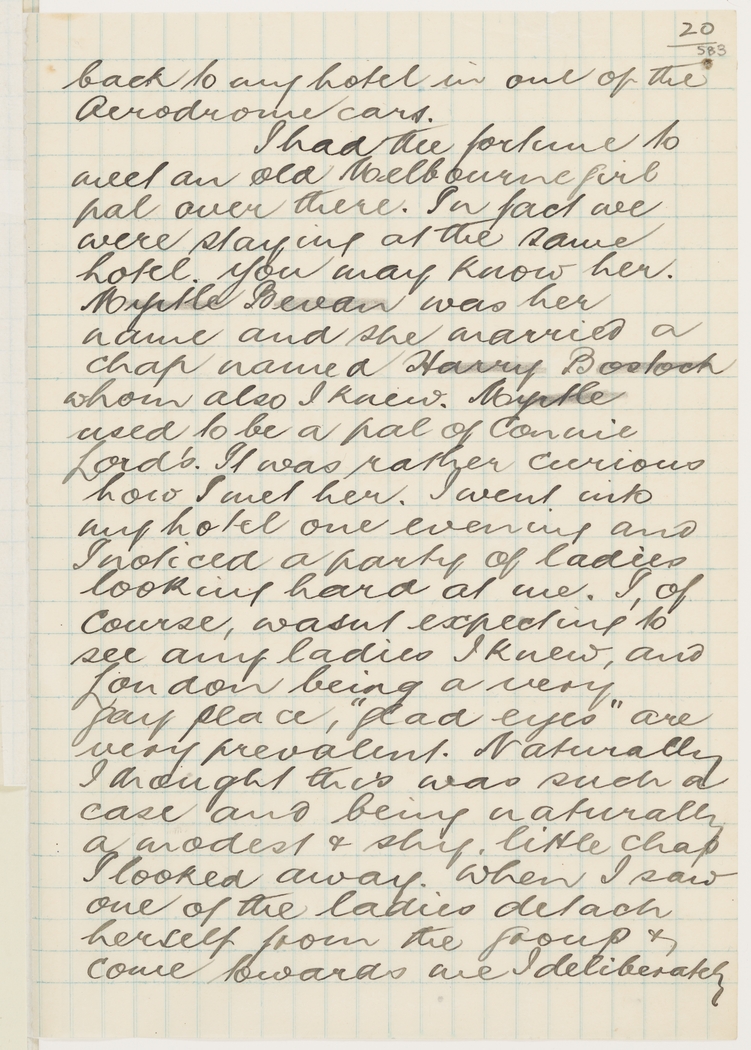 20
583
back to my hotel in one of the
Aerodrome cars.
I had the fortune to
meet an old Melbourne girl
pal over there. In fact we
were staying at the same
hotel. You may know her.
Myrtle Bevan was her
name and she married a
chap named Harry Bostock
whom also I knew. Myrtle
used to be a pal of Connie
Lord's. It was rather curious
how I met her. I went into
my hotel one evening and
I noticed a party of ladies
looking hard at me. I, of
course, wasnt expecting to
see any ladies I knew, and
London being a very
gay place, "glad eyes" are
very prevalent. Naturally
I thought this was such a
case and being naturally
a modest & shy, little chap
I looked away. When I saw
one of the ladies detach
herself from the group &
come towards me I deliberately